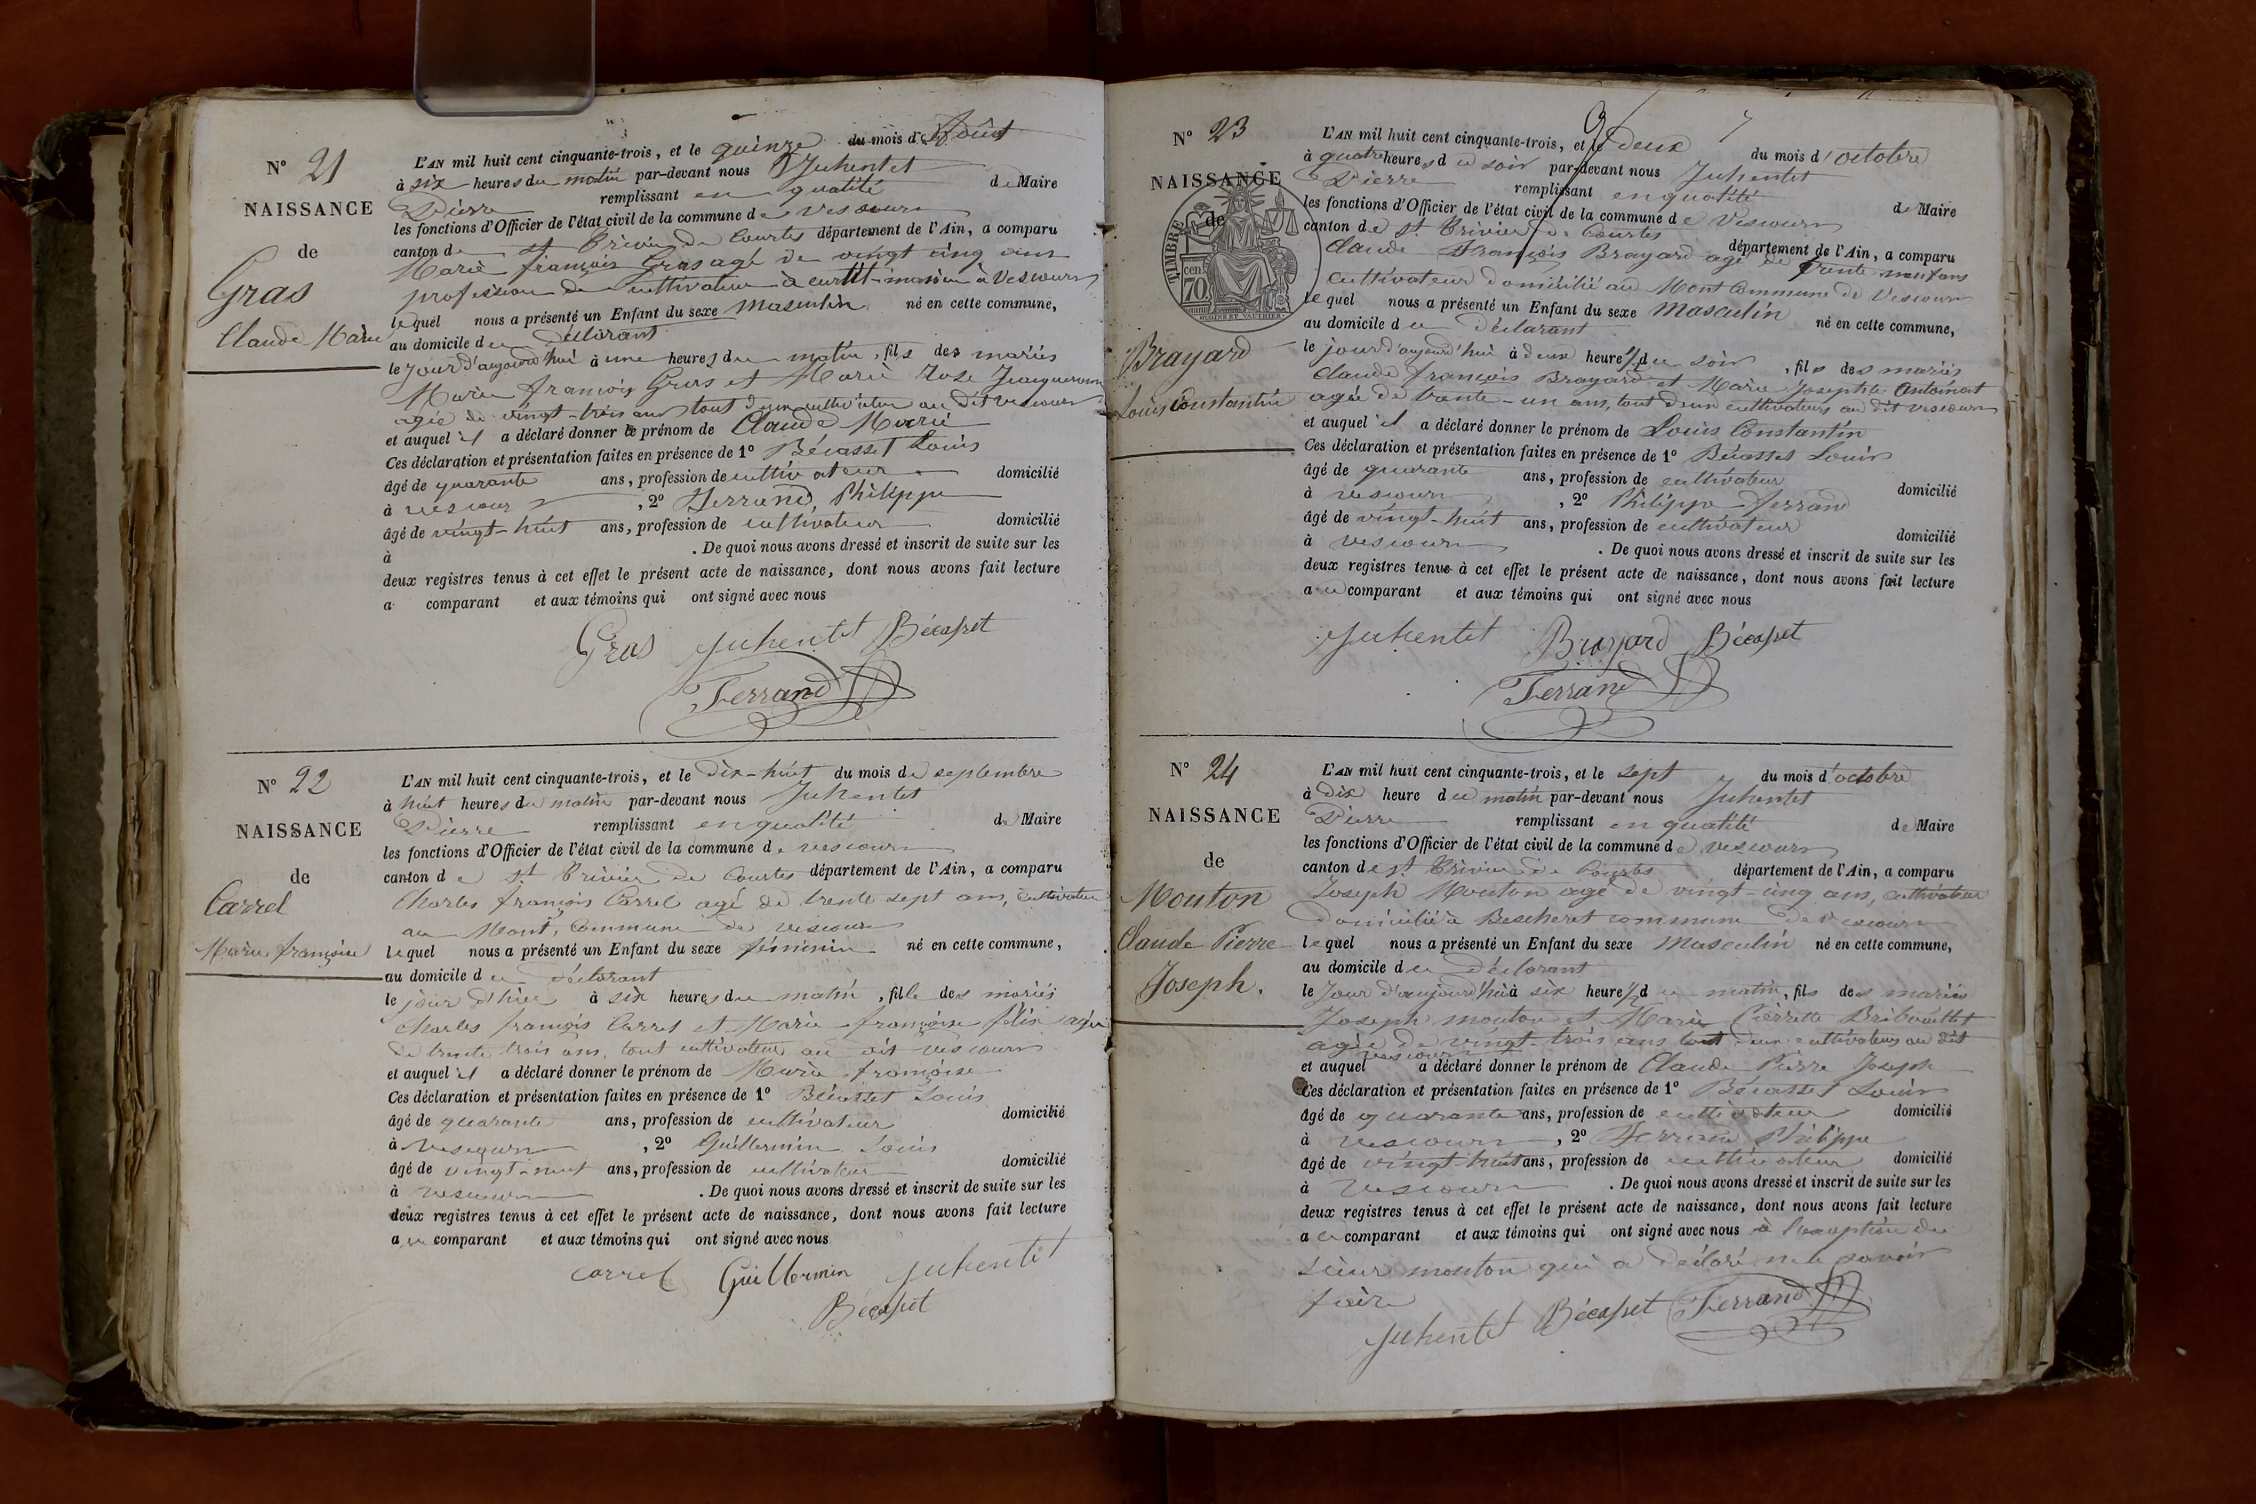 N° 21
NAISSANCE
de
Gras
Claude Marie
L'AN mil huit cent cinquante-trois, et le quinze du mois d'Août
à six heures du matin par-devant nous Juhentet
Pierre remplissant en qualité de Maire
les fonctions d'Officier de l'état civil de la commune de Vescours
canton de st Trivier de Courtes département de l'Ain, a comparu
Marie françois Gras agé de vingt cinq ans
profession de cultivateur à à Vescours
lequel nous a présenté un Enfant du sexe masculin né en cette commune,
au domicile du déclarant
le jour d'aujourd'hui à une heures du matin, fils des mariés
Marie françois Gras et Marie Rose
agée de vingt-trois ans tout deux cultivateur au dit vescours
et auquel il a déclaré donner le prénom de Claude Marie
Ces déclaration et présentation faites en présence de 1° Bécasset Louis
âgé de quarante ans, profession de cultivateur domicilié
à vescours, 2° Ferrand Philippe
âgé de vingt-huit ans, profession de cultivateur domicilié
à . De quoi nous avons dressé et inscrit de suite sur les
deux registres tenus à cet effet le présent acte de naissance, dont nous avons fait lecture
a comparant et aux témoins qui ont signé avec nous
Gras Juhentet Bécasset
Ferrand
N° 22
NAISSANCE
de
Carrel
Marie françoise
L'AN mil huit cent cinquante-trois, et le dix-huit du mois de septembre
à huit heures du matin par-devant nous Juhentet
Pierre remplissant en qualité de Maire
les fonctions d'Officier de l'état civil de la commune de vescours
canton de st Trivier de Courtes département de l'Ain, a comparu
Charles françois Carrel agé de trente sept ans, cultivateur
au Mont, Commune de vescours
lequel nous a présenté un Enfant du sexe féminin né en cette commune,
au domicile du déclarant
le jour d'hier à six heures du matin, fille des mariés
Charles françois Carrel et Marie françoise félix agée
de trente trois ans, tout cultivateur au dit vescours
et auquel il a déclaré donner le prénom de Marie françoise
Ces déclaration et présentation faites en présence de 1° Bécasset Louis
âgé de quarante ans, profession de cultivateur domicilié
à vescours, 2° Guillermin Louis
âgé de vingt-neuf ans, profession de cultivateur domicilié
à vescours . De quoi nous avons dressé et inscrit de suite sur les
deux registres tenus à cet effet le présent acte de naissance, dont nous avons fait lecture
au comparant et aux témoins qui ont signé avec nous
Carrel Guillermin Juhentet
Bécasset
N° 23
NAISSANCE
de
TIMBRE
70 cen
Brayard
Louis Constantin
L'AN mil huit cent cinquante-trois, et le deux du mois d'octobre
à quatre heures du soir par-devant nous Juhentet
Pierre remplissant en qualité de Maire
les fonctions d'Officier de l'état civil de la commune de Vescours
canton de st Trivier de Courtes département de l'Ain, a comparu
Claude François Brayard agé de trente neuf ans
cultivateur domicilié au Mont Commune de Vescours
lequel nous a présenté un Enfant du sexe Masculin né en cette commune,
au domicile du déclarant
le jour d'aujourd'hui à deux heures du soir, fils des mariés
Claude françois Brayard et Marie Josephte Antoinat
agée de trente-un ans, tout deux cultivateurs au dit vescours
et auquel il a déclaré donner le prénom de Louis Constantin
Ces déclaration et présentation faites en présence de 1° Bécasset Louis
âgé de quarante ans, profession de cultivateur domicilié
à vescours, 2° Philippe ferrand
âgé de vingt-huit ans, profession de cultivateur domicilié
à vescours . De quoi nous avons dressé et inscrit de suite sur les
deux registres tenus à cet effet le présent acte de naissance, dont nous avons fait lecture
au comparant et aux témoins qui ont signé avec nous
Juhentet Brayard Bécasset
Ferrand
N° 24
NAISSANCE
de
Mouton
Claude Pierre
Joseph.
L'AN mil huit cent cinquante-trois, et le sept du mois d'octobre
à dix heure du matin par-devant nous Juhentet
Pierre remplissant en qualité de Maire
les fonctions d'Officier de l'état civil de la commune de vescours
canton de st Trivier de Courtes département de l'Ain, a comparu
Joseph Mouton agé de vingt-cinq ans, cultivateur
domicilié à Bescheret commune de Vescours
lequel nous a présenté un Enfant du sexe Masculin né en cette commune,
au domicile du déclarant
le Jour d'aujourd'hui à six heures du matin, fils des mariés
Joseph mouton et Marie Pierrette
agée de vingt-trois ans tout deux cultivateurs au dit
vescours
et auquel a déclaré donner le prénom de Claude Pierre Joseph
Ces déclaration et présentation faites en présence de 1° Bécasset Louis
âgé de quarante ans, profession de cultivateur domicilié
à vescours, 2° Ferrand Philippe
âgé de vingt-huit ans, profession de cultivateur domicilié
à vescours . De quoi nous avons dressé et inscrit de suite sur les
deux registres tenus à cet effet le présent acte de naissance, dont nous avons fait lecture
au comparant et aux témoins qui ont signé avec nous à l'exception du
sieur mouton qui a déclaré ne le savoir
faire
Juhentet Bécasset Ferrand